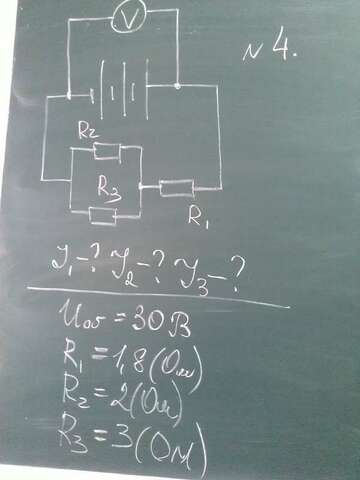 V
N 4.
R2
R3
R1
I1-? I2-? I3-?
Uоб = 30 В
R1 = 1,8 (Ом)
R2 = 2 (Ом)
R3 = 3 (Ом)